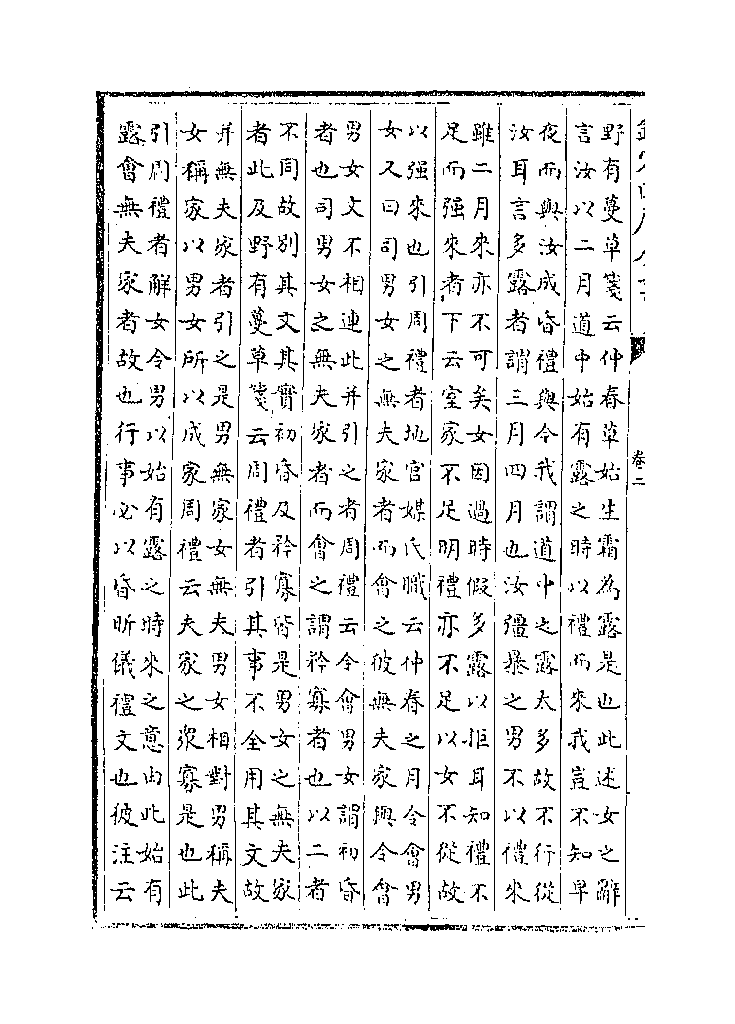 卷二
野有蔓草箋云仲春草始生霜為露是也此述女之辭
言汝以二月道中始有露之時以禮而來我豈不知早
夜而與汝成昏禮與今我謂道中之露太多故不行從
汝耳言多露者謂三月四月也汝彊暴之男不以禮來
雖二月來亦不可矣女因過時假多露以拒耳知禮不
足而强來者下云室家不足明禮亦不足以女不從故
以强來也引周禮者地官媒氏職云仲春之月令會男
女又曰司男女之無夫家者而會之彼無夫家與令會
男女文不相連此并引之者周禮云令會男女謂初昏
者也司男女之無夫家者而會之謂矜寡者也以二者
不同故别其文其實初昏及矜寡皆是男女之無夫家
者此及野有蔓草箋云周禮者引其事不全用其文故
并無夫家者引之是男無家女無夫男女相對男稱夫
女稱家以男女所以成家周禮云夫家之衆寡是也此
引周禮者解女令男以始有露之時來之意由此始有
露會無夫家者故也行事必以昏昕儀禮文也彼注云